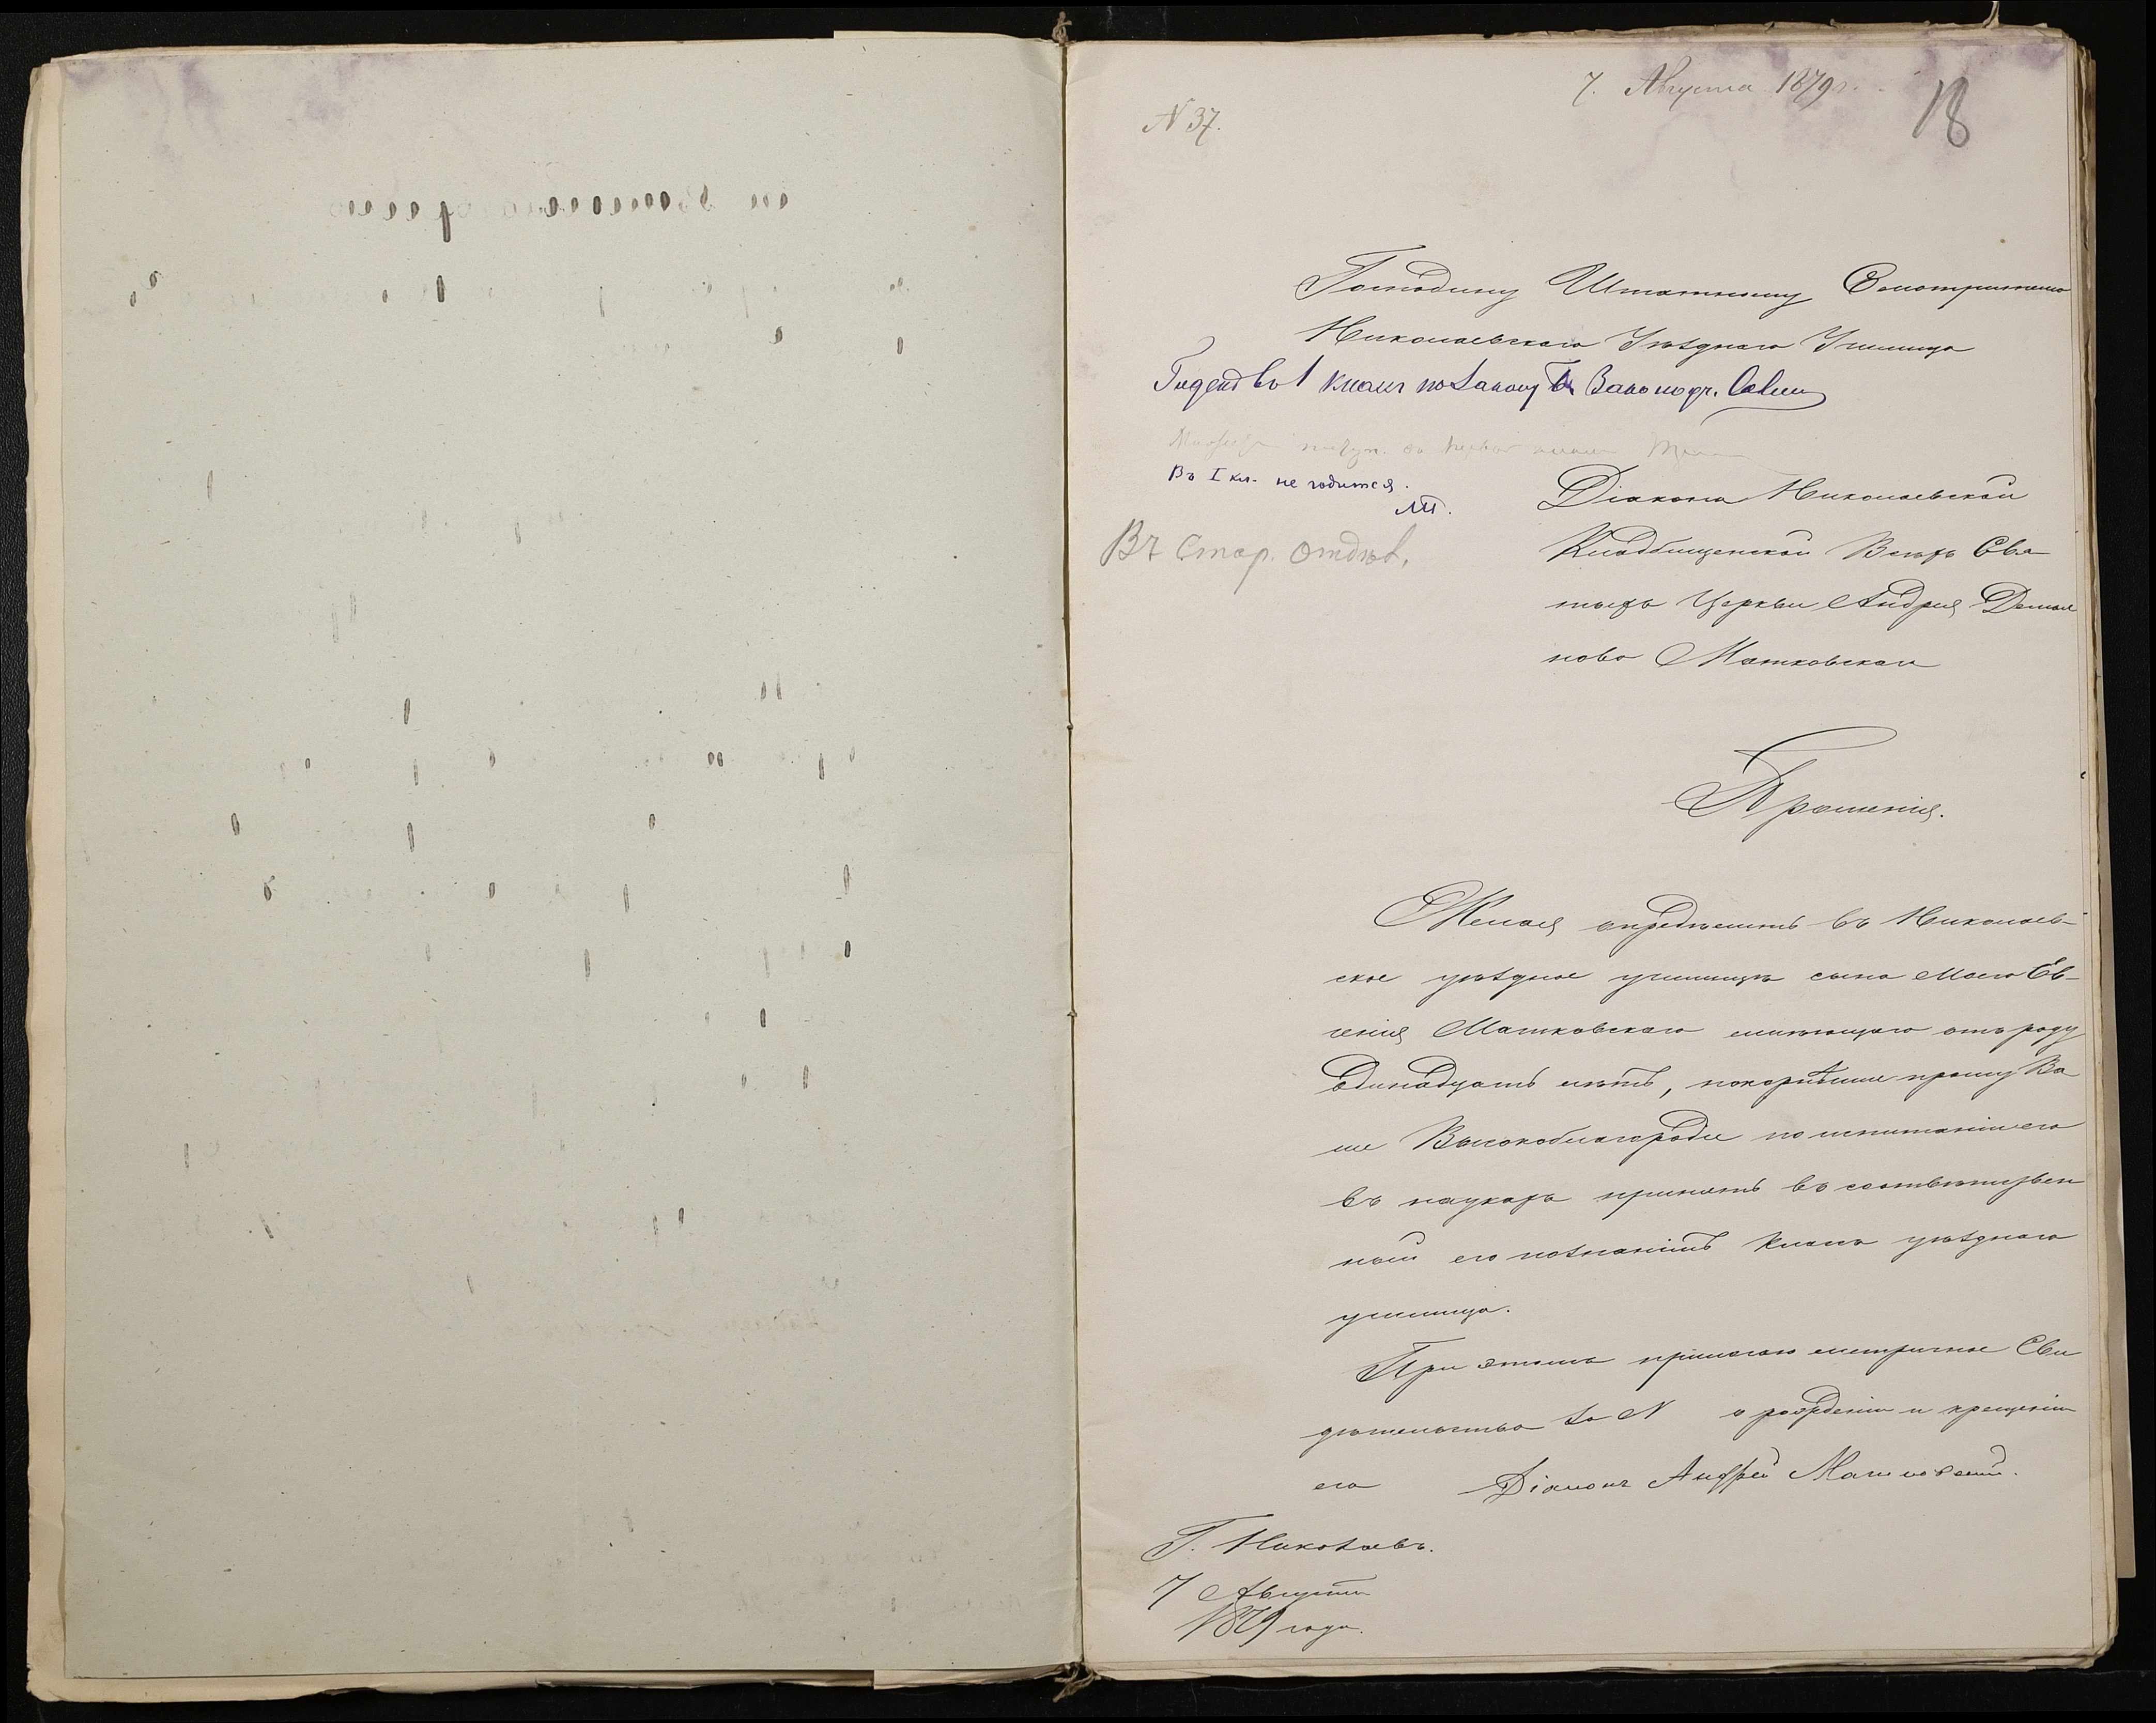 7. Августа 1879 г.
18
N 37.
Господину Штатному Смотрителю
Николаевскаго Уѣзднаго Училища
Годенъ въ 1 классъ по Закону Б. Законоуч.
Въ I кл. не годится.
Въ Стар. отдѣл.
Діакона Николаевской
Кладбищенской Всѣхъ Свя-
тыхъ Церкви Андрея Демья
нова Матковскаго
Прошенія.
Желая опредѣлить въ Николаев-
ское уѣздное училище сына моего Ев-
генія Матковскаго имѣющаго отъ роду
одинадцать лѣтъ, покорнѣйше прошу Ва
ше Высокоблагородіе по испытаніи его
въ наукахъ принять въ соотвѣтствен
ный его познаніямъ классъ уѣзднаго
училища.
При этомъ прилагаю метричное Сви
дѣтельство за N о рожденіи и крещеніи
его Діаконъ Андрей Матковскій.
Г. Николаевъ.
7 Августа
1879 года.